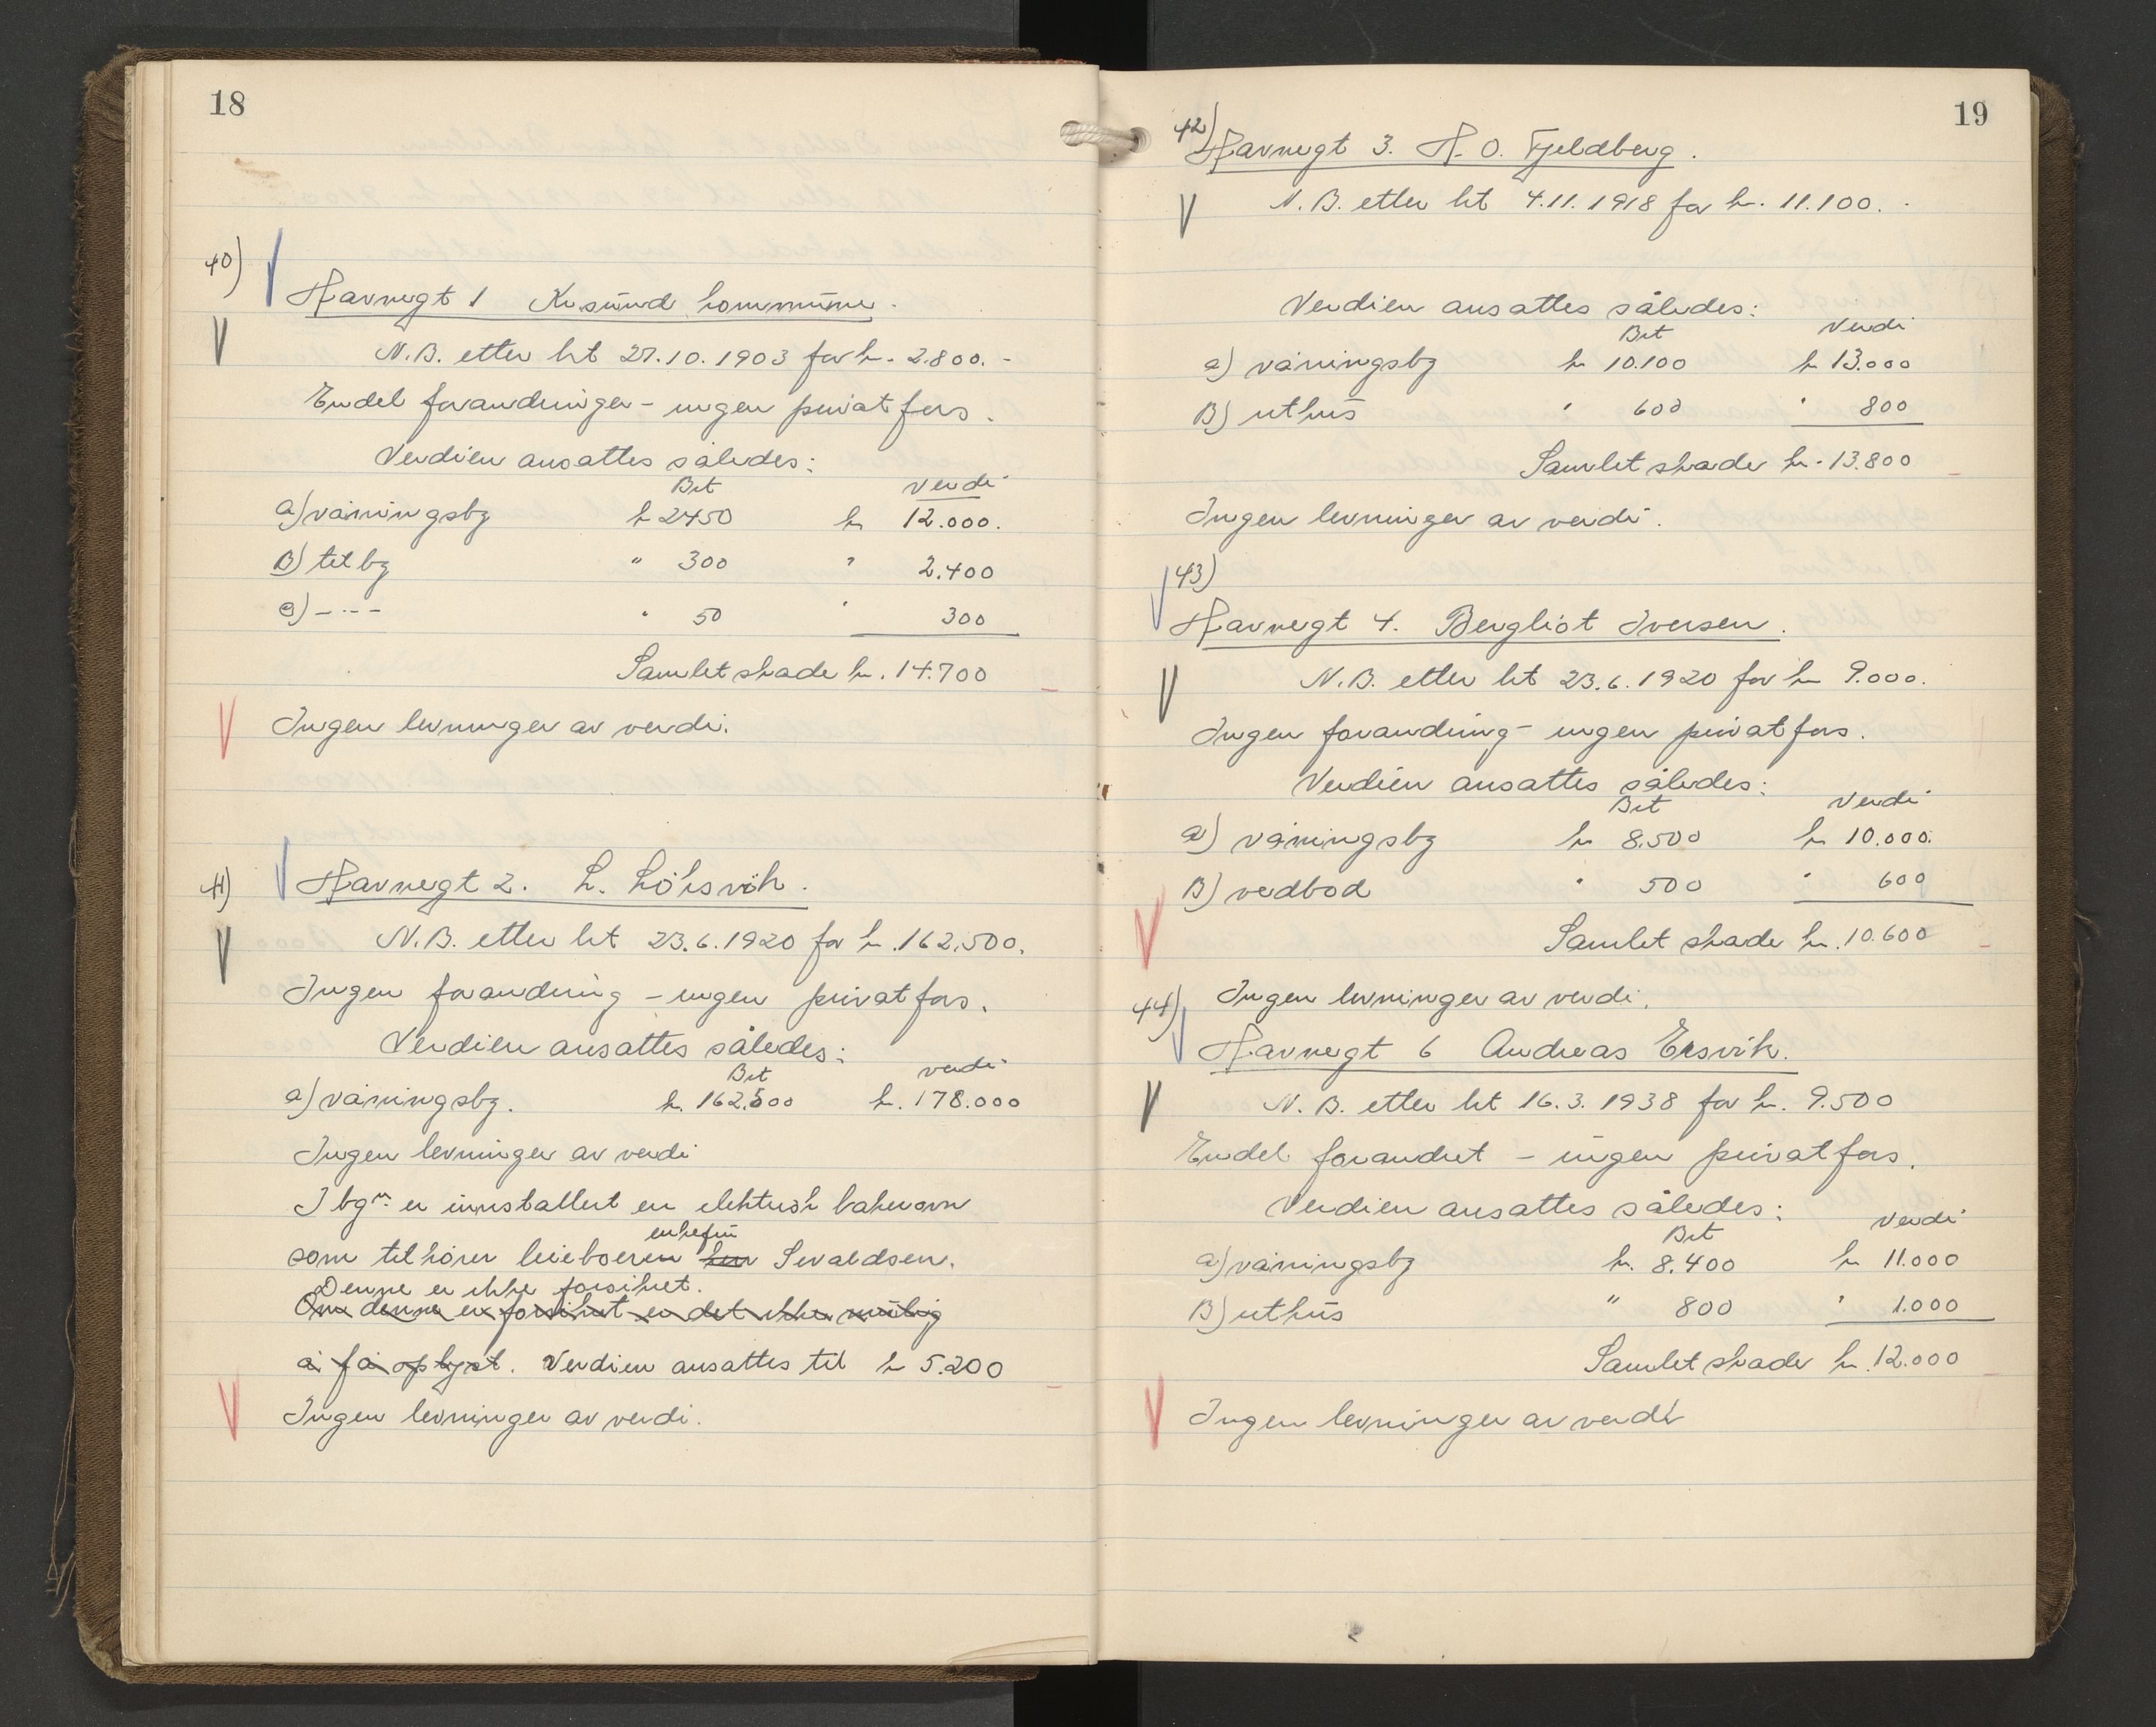 18
40)
Havnegt 1 Kr.sund kommune.
N.B. etter tkt 27.10.1903 for kr. 2.800.-
Endel forandringer - ingen privat fors.
Verdien ansattes således:
Brt Verdi
a) våningsbg kr 2450 kr 12.000.
B) tilbg " 300 " 2.400
c) -..- " 50 " 300
Samlet skade kr. 14.700
Ingen levninger av verdi.
41) Havnegt 2. L. Löksvik.
N.B. etter tkt 23.6.1920 for kr. 162.500.
Ingen forandring - ingen privat fors.
Verdien ansattes således:
Brt verdi
a) våningsbg. kr. 162.500 kr. 178.000
Ingen levninger av verdi
I bgn. er innstallert en elektrisk bakerovn
enkefru
som tilhører leieboeren herr Sevaldsen.
Denne er ikke forsikret.
Om denne er forsikret er det ikke mulig
å få oplyst. Verdien ansattes til kr 5.200
Ingen levninger av verdi.
19
42)
Havnegt 3. H. O. Fjeldberg.
N.B. etter tkt 4.11.1918 for kr. 11.100.-
Verdien ansattes således:
Brt Verdi
a) våningsbg kr 10.100 kr 13.000
B) uthus " 600 " 800
Samlet skade kr. 13.800
Ingen levninger av verdi.
43)
Havnegt 4. Bergliot Iversen.
N.B. etter tkt 23.6.1920 for kr 9.000.
Ingen forandring - ingen privat fors.
Verdien ansattes således:
Brt Verdi
a) våningsbg kr 8.500 kr 10.000.
B) vedbod " 500 " 600
Samlet skade kr. 10.600
Ingen levninger av verdi.
44)
Havnegt 6 Andreas Ersvik.
N.B. etter tkt 16.3.1938 for kr. 9.500
Endel forandret - ingen privat fors.
Verdien ansattes således:
Brt Verdi
a) våningsbg kr. 8.400 kr 11.000
B) uthus " 800 " 1.000
Samlet skade kr. 12.000
Ingen levninger av verdi